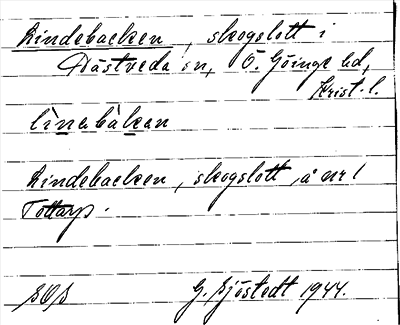 Lindebacken, skogslott i
Hästveda sn, Ö. Göinge hd,
Krist. l.
lìnebàkan
Lindebacken, skogslott, å nr 1
Tottarp.
SOS
G. Sjöstedt 1944.